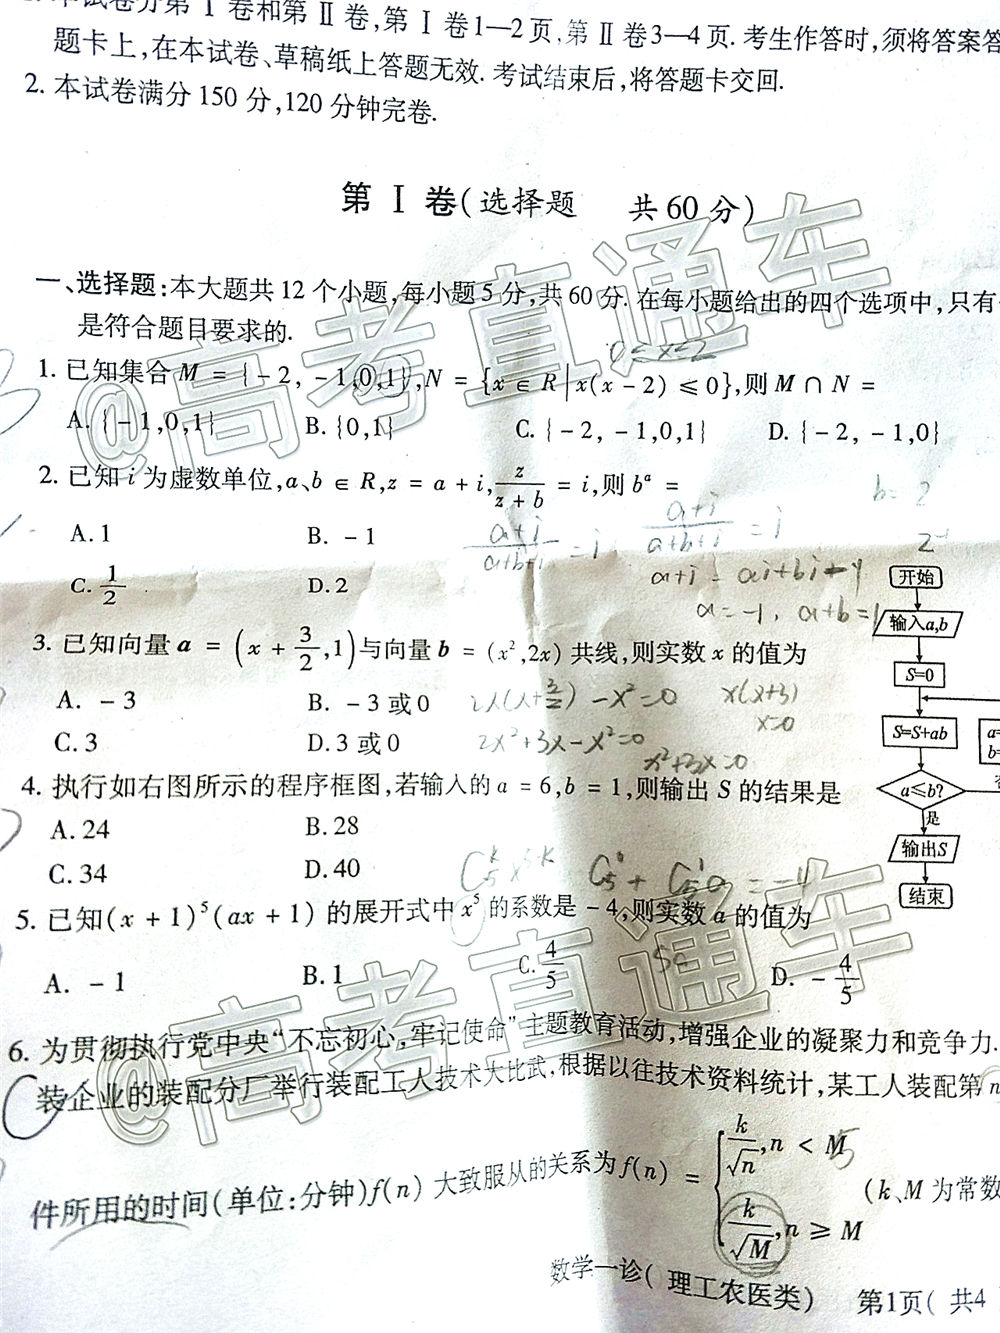 本试卷分第Ⅰ卷和第Ⅱ卷,第Ⅰ卷1—2页,第Ⅱ卷3—4页.考生作答时,须将答案答
题卡上,在本试卷、草稿纸上答题无效.考试结束后,将答题卡交回.
2.本试卷满分150分,120分钟完卷.
第Ⅰ卷(选择题 共60分)
一、选择题:本大题共12个小题,每小题5分,共60分.在每小题给出的四个选项中,只有
是符合题目要求的.
0≤x≤2
1.已知集合M={-2,-1,0,1},N={x∈R|x(x-2)≤0},则M∩N=
A.{-1,0,1} B.{0,1} C.{-2,-1,0,1} D.{-2,-1,0}
2.已知i为虚数单位,a、b∈R,z=a+i,z/(z+b)=i,则b^a=
b=2
A.1 B.-1
(a+i)/(a+b+i)=i (a+i)/(a+b+i)=i
C.1/2 D.2
a+i=ai+bi-1
a=-1,a+b=1
开始
输入a,b
S=0
S=S+ab
a≤b?
是
输出S
结束
3.已知向量a=(x+3/2,1)与向量b=(x²,2x)共线,则实数x的值为
A.-3 B.-3或0
2x(x+3/2)-x²=0 x(x+3)
x=0
C.3 D.3或0
2x²+3x-x²=0
x²+3x=0
4.执行如右图所示的程序框图,若输入的a=6,b=1,则输出S的结果是
A.24 B.28
C.34 D.40
5.已知(x+1)⁵(ax+1)的展开式中x⁵的系数是-4,则实数a的值为
A.-1 B.1 C.4/5 D.-4/5
6.为贯彻执行党中央“不忘初心,牢记使命”主题教育活动,增强企业的凝聚力和竞争力.
装企业的装配分厂举行装配工人技术大比武,根据以往技术资料统计,某工人装配第n
件所用的时间(单位:分钟)f(n)大致服从的关系为f(n)={k/√n,n<M k/√M,n≥M (k、M为常数
数学一诊(理工农医类) 第1页(共4
@高考直通车
@高考直通车